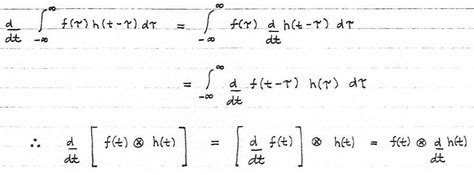 d/dt ∫_{-∞}^{∞} f(τ) h(t-τ) dτ = ∫_{-∞}^{∞} f(τ) d/dt h(t-τ) dτ
= ∫_{-∞}^{∞} d/dt f(t-τ) h(τ) dτ
∴ d/dt [ f(t) ⊗ h(t) ] = [ d/dt f(t) ] ⊗ h(t) = f(t) ⊗ d/dt h(t)